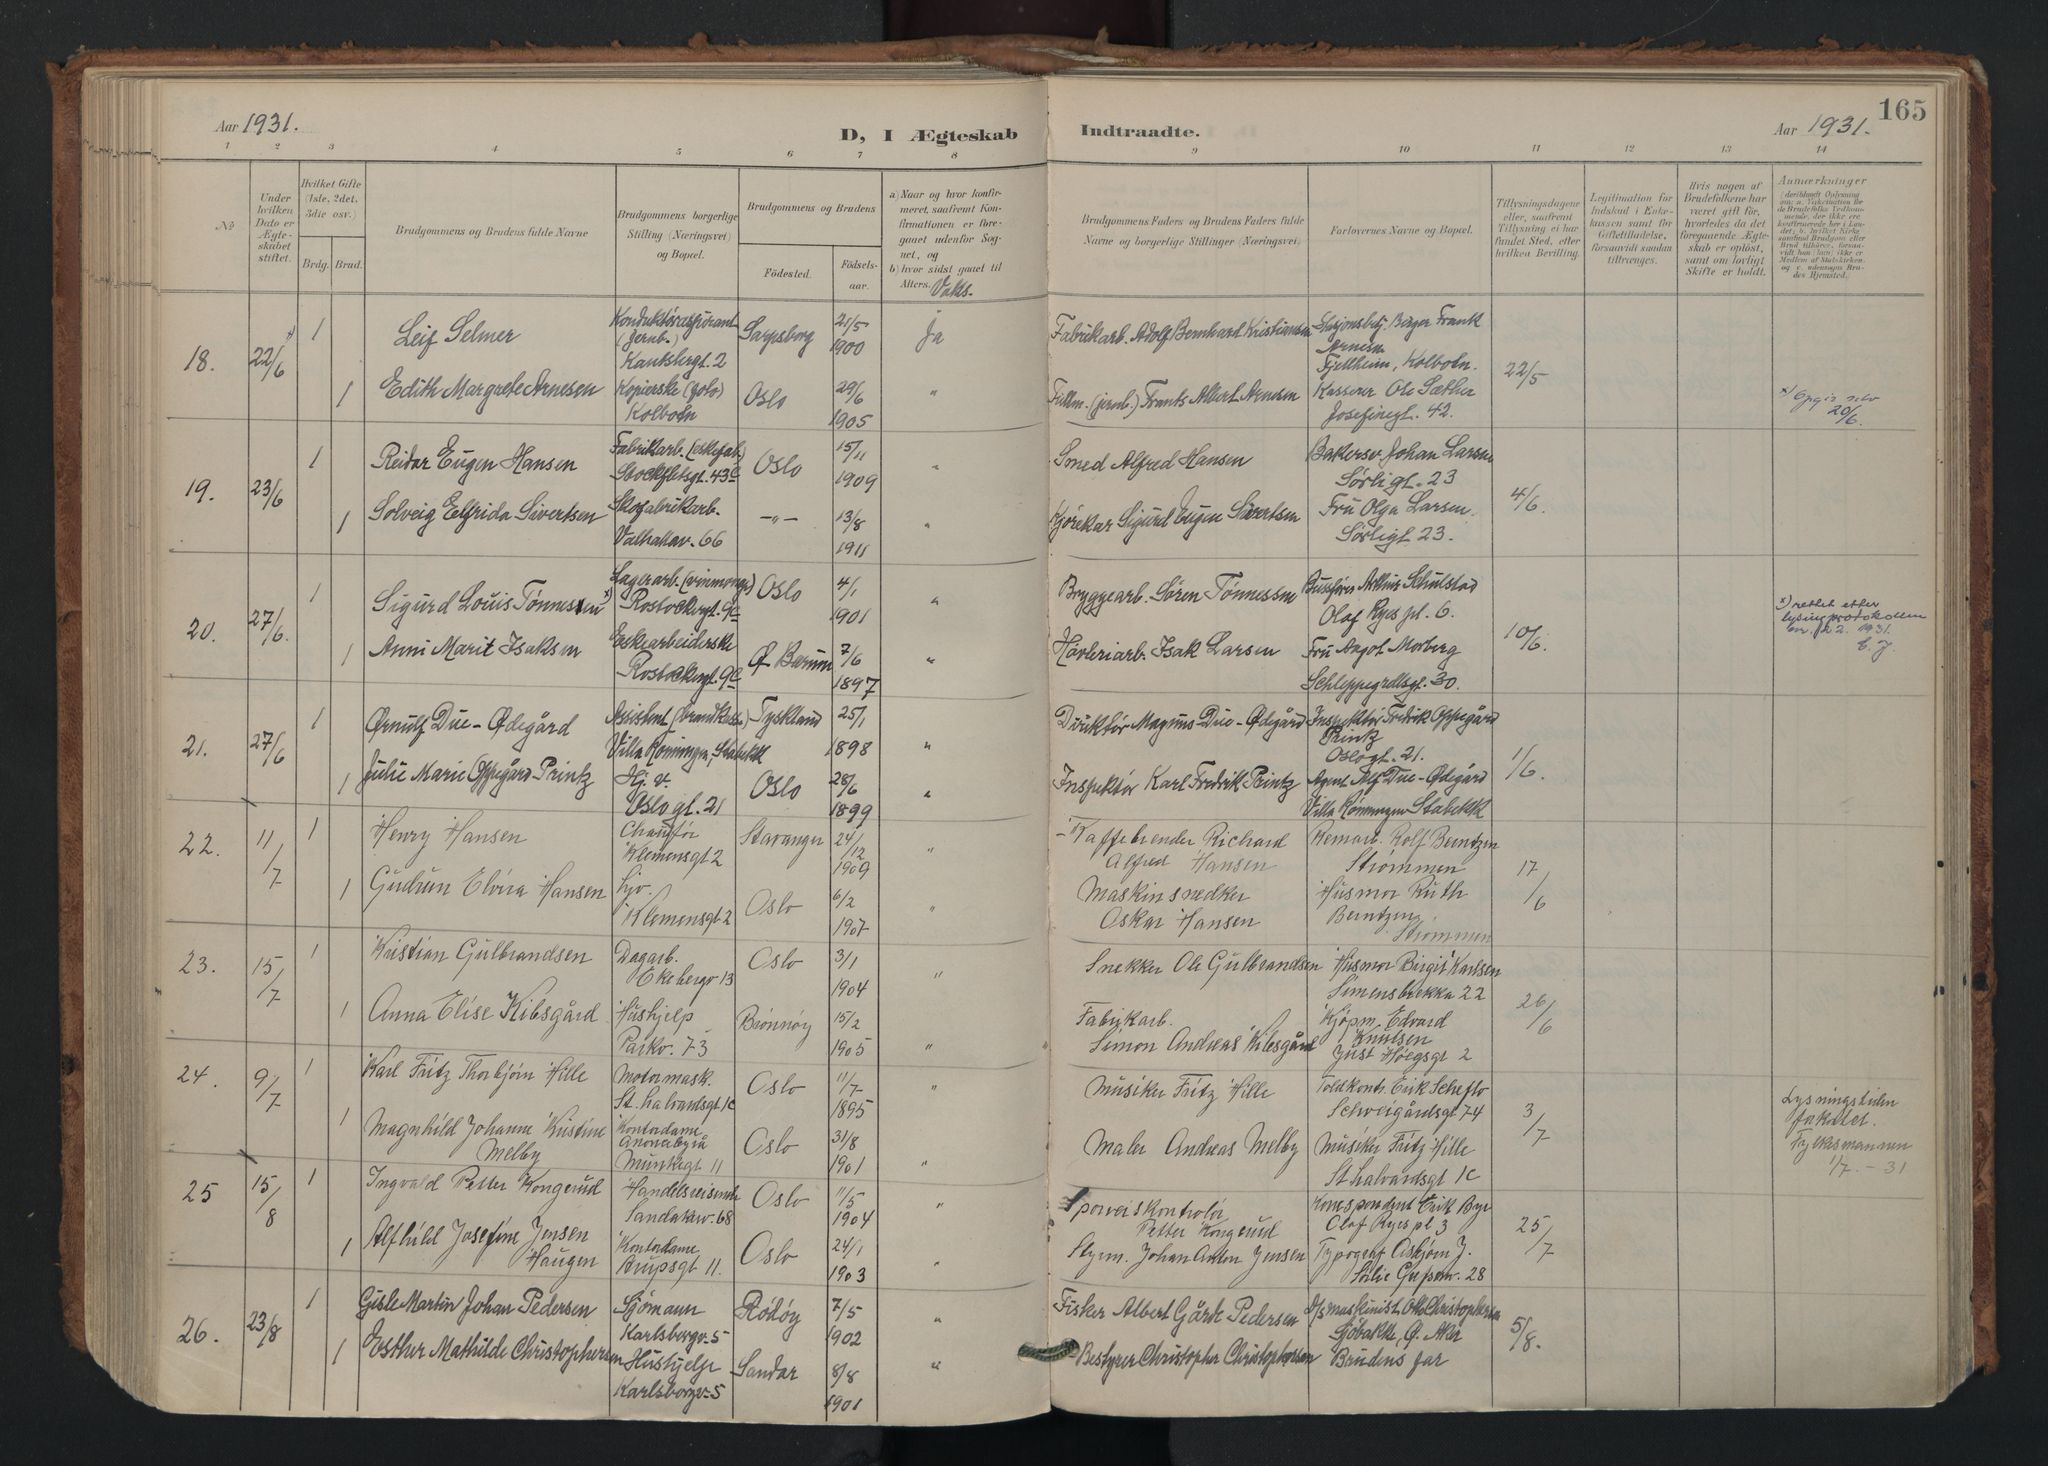 Aar 1931.
D, I Ægteskab
Indtraadte.
165
Aar 1931.
1 2 3 4 5 6 7 8 9 10 11 12 13 14
No
Under hvilken Dato er Ægteskabet stiftet.
Hvilket Gifte (1ste, 2det, 3die osv.)
Brdg. Brud.
Brudgommens og Brudens fulde Navne
Brudgommens borgerlige Stilling (Næringsvei) og Bopæl.
Brudgommens og Brudens
Födested.
Födselsaar.
a) Naar og hvor konfirmeret, saafremt Konfirmationen er foregaaet udenfor Sognet, og
b) hvor sidst gaaet til Alters. Vaks.
Brudgommens Faders og Brudens Faders fulde Navne og borgerlige Stillinger (Næringsvei).
Forlovernes Navne og Bopæl.
Tillysningsdagene eller, saafremt Tillysning ei har fundet Sted, efter hvilken Bevilling.
Legitimation for Indskud i Enkekassen samt for Giftetilladelse, forsaavidt saadan tiltrænges.
Hvis nogen af Brudefolkene har været gift før, hvorledes da det foregaaende Ægteskab er opløst, samt om lovligt Skifte er holdt.
Anmærkninger
18. 22/6 1 Leif Selmer Konduktøraspirant (jernb.) Sarpsborg 21/5 1900 Ja Fabrikarb. Adolf Bernhard Kristiansen Stasjonsbetj. Birger Frank Arnesen
Kantsbergt. 2 Fjellheim, Kolbotn. 22/5
1 Edith Margrete Arnesen Kopierske (foto) Kolbotn Oslo 29/6 1905 " Fullm. (jernb.) Frants Albert Arnesen Kasserer Ole Sæther Josefinegt. 42. 20/6.
19. 23/6 1 Reidar Eugen Hansen Fabrikarb. Stockfletsgt. 43c Oslo 15/11 1909 " Smed Alfred Hansen Bakersv. Johan Larsen Sørligt. 23 4/6.
1 Solveig Elfrida Sivertsen Skofabrikarb. Valhallav. 66 —"— 13/8 1911 " Kjørekar Sigurd Eugen Sivertsen Fru Olga Larsen. Sørligt. 23.
20. 27/6. 1 Sigurd Louis Tønnessen x) Lagerarb. (vinmonop.) Rostockergt. 9c Oslo 4/1 1901 " Bryggearb. Søren Tønnessen Bussfører Arthur Schulstad Olaf Ryes pl. 6. 10/6. x) rettet etter lysingsprotokollen 1931. E.J.
1 Anni Marit Isaksen Eskearbeiderske Rostockergt. 9c Ø. Bærum 7/6 1897 " Høvleriarb. Isak Larsen Fru Aagot Morberg Schleppegrellsgt. 30.
21. 27/6 1 Ørnulf Due-Ødegård Assistent (brandkasse) Villa Rønningen, Stabekk Tyskland 25/1 1898 " Direktør Magnus Due-Ødegård Inspektør Fredrik Oppegård Printz Oslogt. 21. 1/6.
1 Julie Marie Oppegård Printz Hj. v. Oslogt. 21 Oslo 28/6 1899 " Inspektør Karl Fredrik Printz Agent Alf Due-Ødegård Villa Rønningen Stabekk
22. 11/7 1 Henry Hansen Chauffør Klemensgt 2 Stavanger 24/12 1909 " Kaffebrender Richard Alfred Hansen Rolf Berntzen Strømmen 17/6
1 Gudrun Elvira Hansen hjv. Klemensgt 2 Oslo 6/2 1907 " Maskinsnedker Oskar Hansen Husmor Ruth Berntzen, Strømmen
23. 15/7 1 Kristian Gulbrandsen Dagarb. Ekebergv 13 Oslo 3/1 1904 " Snekker Ole Gulbrandsen Husmor Birgit Karlsen Simensbrekka 22 26/6
1 Anna Elise Kibsgård Hushjelp Parkv. 73 Brønnøy 15/2 1905 " Fabrikarb. Simon Andreas Kibsgård Kjøpm. Edvard Knutsen Just Høegsgt 2
24. 9/7 1 Karl Fritz Thorbjørn Hille Motormask. St. halvardsgt 1c Oslo 11/7 1895 " Musiker Fritz Hille Toldkontr. Erik Scheflo Schweigårdsgt 74 3/7 Lysningstiden Fylkesmannen 1/7. – 31
1 Magnhild Johanne Kristine Melby Kontordame Munkegt 11 Oslo 31/8 1901 " Maler Andreas Melby Musiker Fritz Hille St halvardsgt 1c
25 15/8 1 Ingvald Petter Kongerud Handelsreisende Sandakerv. 68 Oslo 11/5 1904 " Sporveiskontrolør Petter Kongerud Korrespondent Erik Bye Olaf Ryes pl 3 25/7
1 Alfhild Josefine Jensen Haugen Kontordame Krupsgt 11. Oslo 24/1 1903 " Styrm. Johan Anton Jensen Typograf Asbjørn J. 28
26. 23/8 1 Gisle Martin Johan Pedersen Sjømann Karlsborgv. 5 Rødøy 7/5 1902 " Fisker Albert Gårk Pedersen D/s maskinist Otto Christophersen Sjøbakke, Ø. Aker 5/8.
1 Esther Mathilde Christophersen Hushjelp Karlsborgv. 5 Sandar 8/8 1901 " Bestyrer Christopher Christophersen Brudens far